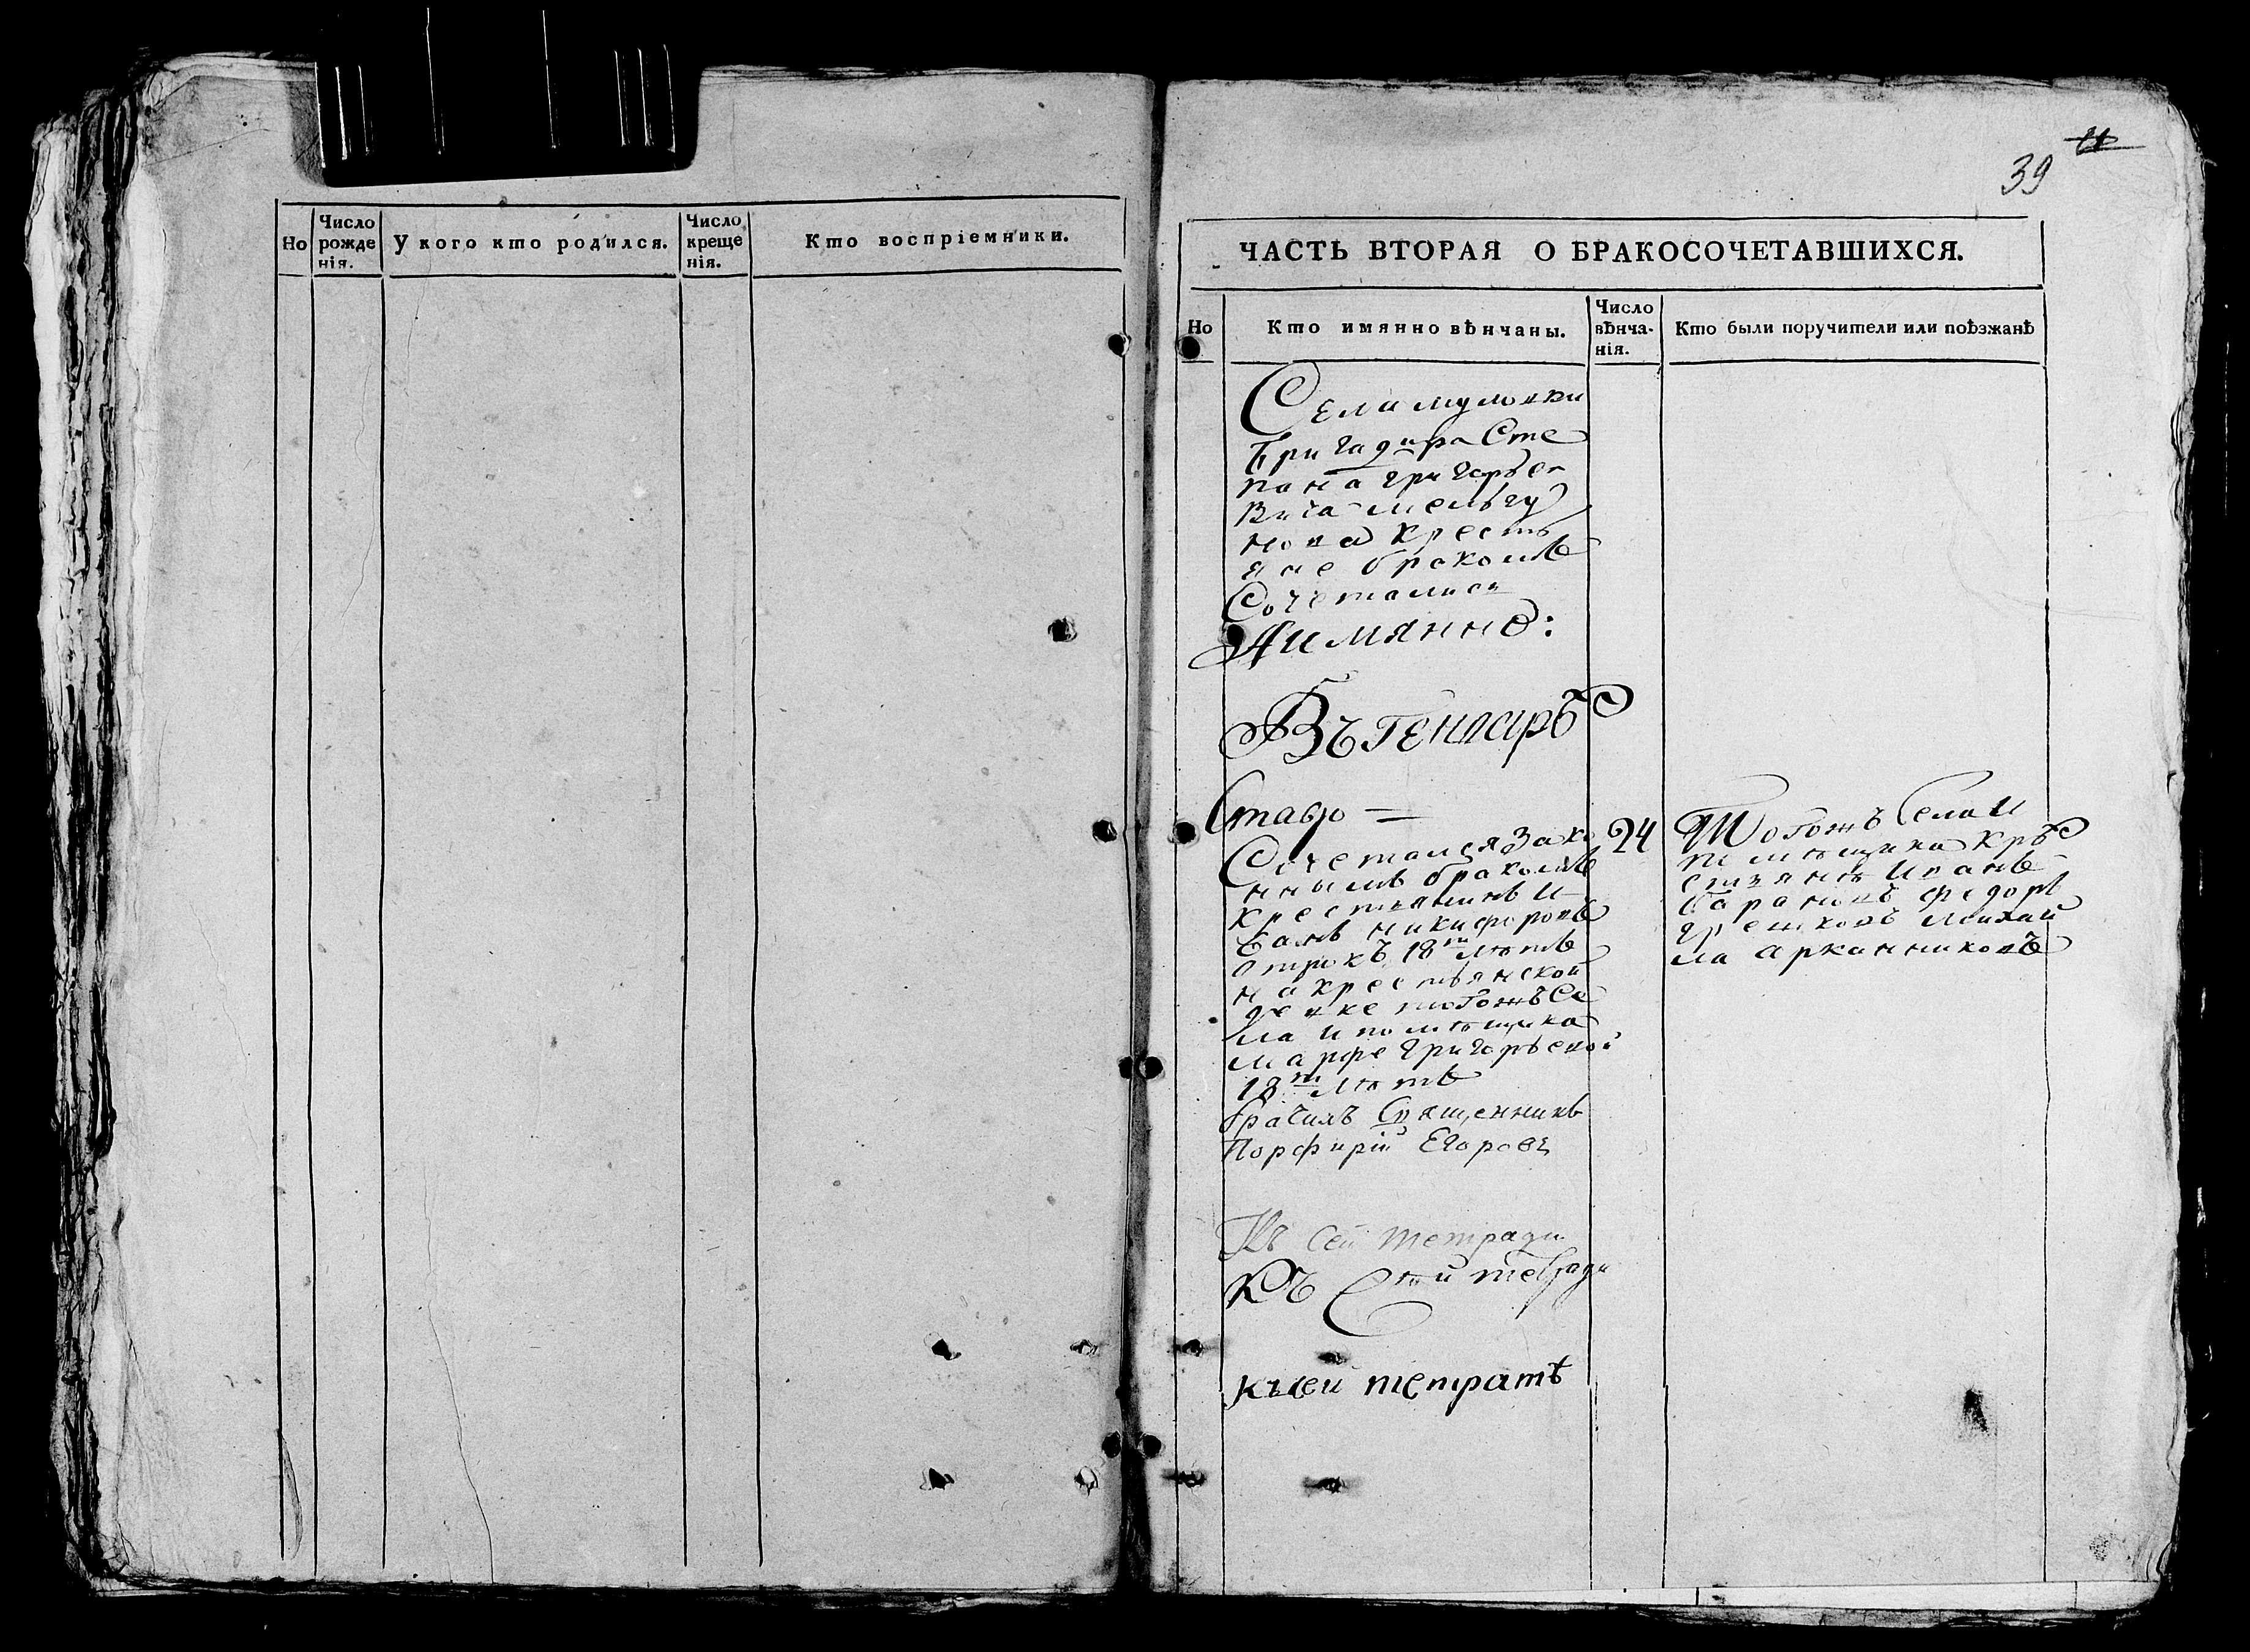 Но
Число рожде нія.
У кого кто родился.
Число креще нія.
Кто воспріемники.
39
ЧАСТЬ ВТОРАЯ О БРАКОСОЧЕТАВШИХСЯ.
Но
Кто имянно вѣнчаны.
Число вѣнча- нія.
Кто были поручители или поѣзжанѣ
Села
Бригадира Сте
пана Григорье
вича Мельгу
нова крестъ
яне бракомъ
Сочетались
Аимянно:
Въ Генварѣ
Сочетался зако
ннымъ бракомъ
крестьянинъ И
ванъ никифоровъ
отрокъ 18ть лѣтъ
на крестьянской
девке тогожъ Се
ла и помѣщика
марфе григорьевой
18ть лѣтъ
брачилъ Священникъ
Порфирій Егоровъ
24
Тогожъ Села И
помѣщика кре
стьянѣ Иванъ
барановъ федоръ
михай
ла
Къ Сей тетради
Къ Сѣй тетради
ксей тетратѣ